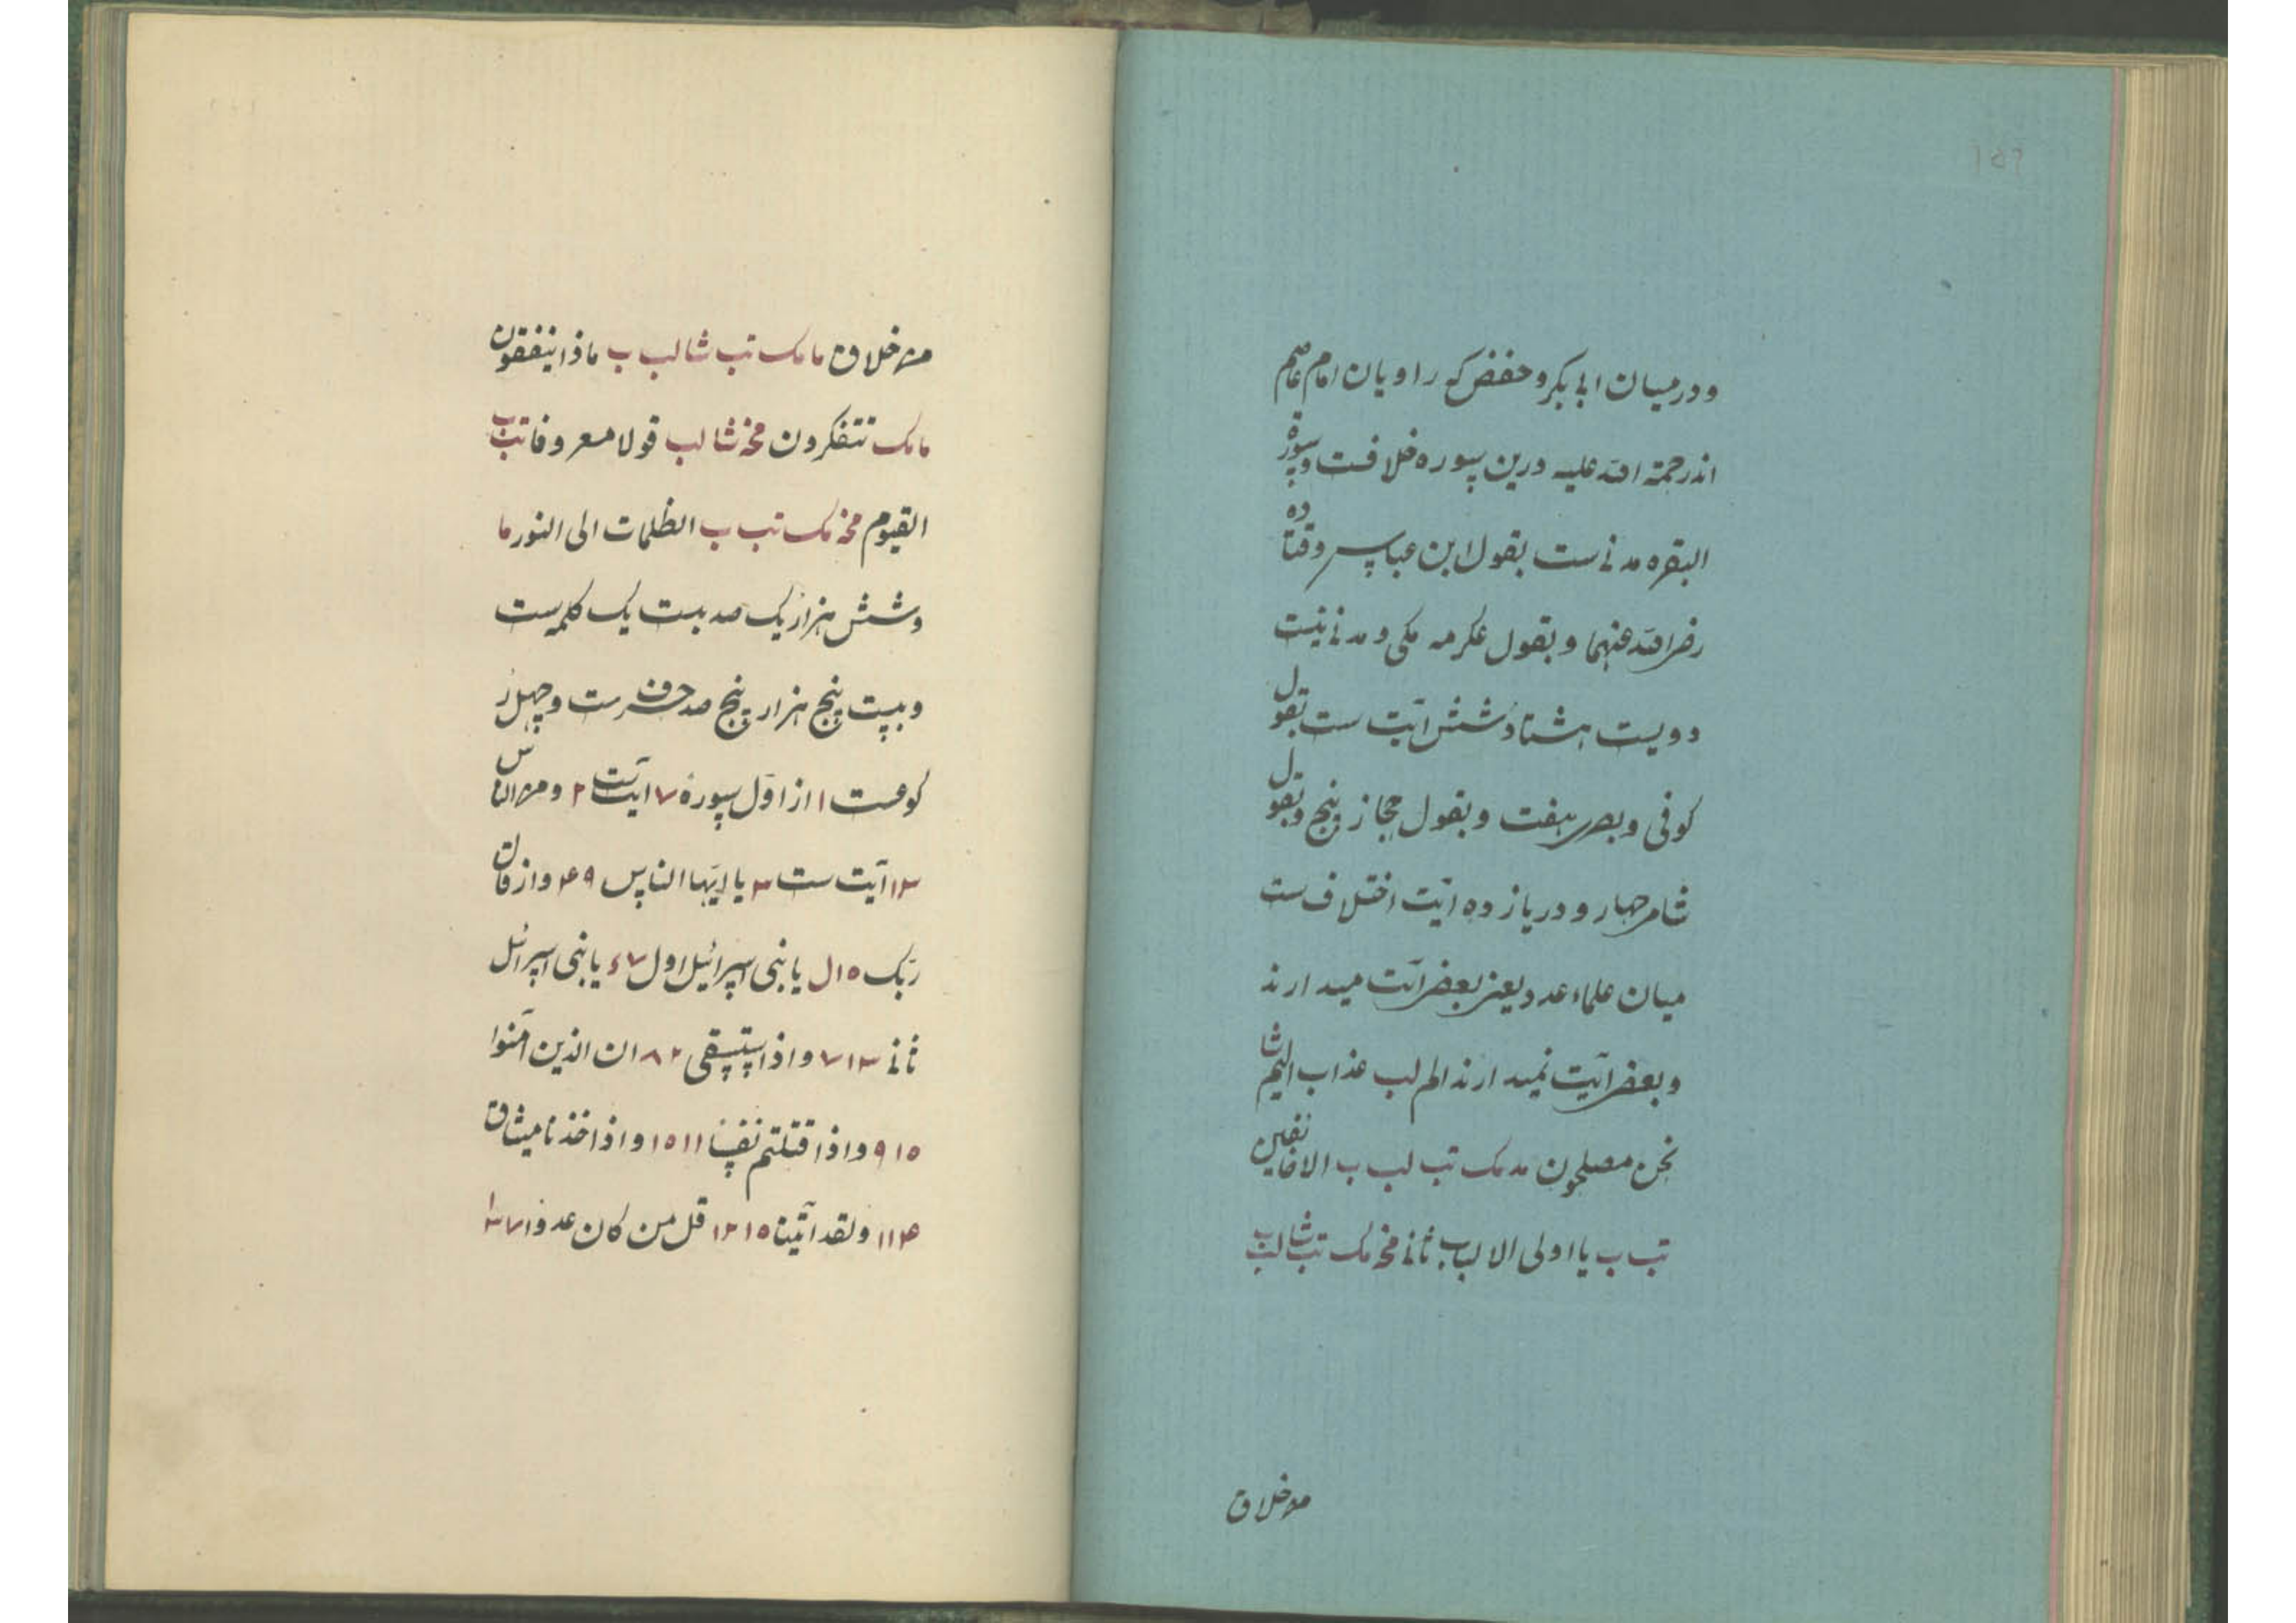 ودرمیان ابی بکر و حفض که راویان امام عاصم
اندرحمة الله علیه درین سوره خلافست وسورة
البقره مدنی ست بقول ابن عباس وقتاده
رضی الله عنهما و بقول عکرمه مکی و مدنی نیست
دویست هشتاد و شش آیت ست بقول
کوفی و بصری هفت و بقول حجاز پنج وبقول
شامی چهار و در یازده آیت اختلاف ست
میان علماء عدد یعنی بعضی آیت میدارند
و بعضی آیت نمیدارند الم لب عذاب الیم شا
نحن مصلحون مد مک تب لب ب الا خائفین
تب ب یا اولی الالباب ثانی مخ مک تب شا لب
من خلاق
من خلاق ما مک تب شا لب ب ماذا ینفقون
ما مک تتفکرون مخ شا لب قولا معروفا تب ب
القیوم مخ مک تب ب الظلمات الی النور ما
وشش هزار یک صد بست یک کلمه ست
و بیست پنج هزار پنج صد حرف ست و چهل ر
کوعست ۱ از اول سورة ۷ آیت ست ۲ ومن الناس
۱۳ آیت ست ۳ یا ایها الناس ۴۹ واز قال
ربک ۱۵ل یا بنی اسرائیل اول ۷ ۶ یا بنی اسرائل
ثانی ۱۳ ۷ واذ استسقی ۲ ۸ ان الذین آمنوا
۱۵ ۹ واذ قتلتم نفسا ۱۱ ۱۵ واذ اخذنا میثاق
۴ ۱۱ ولقد آتینا ۱۵ ۱۲ قل من کان عدوا ۷ ۱۳